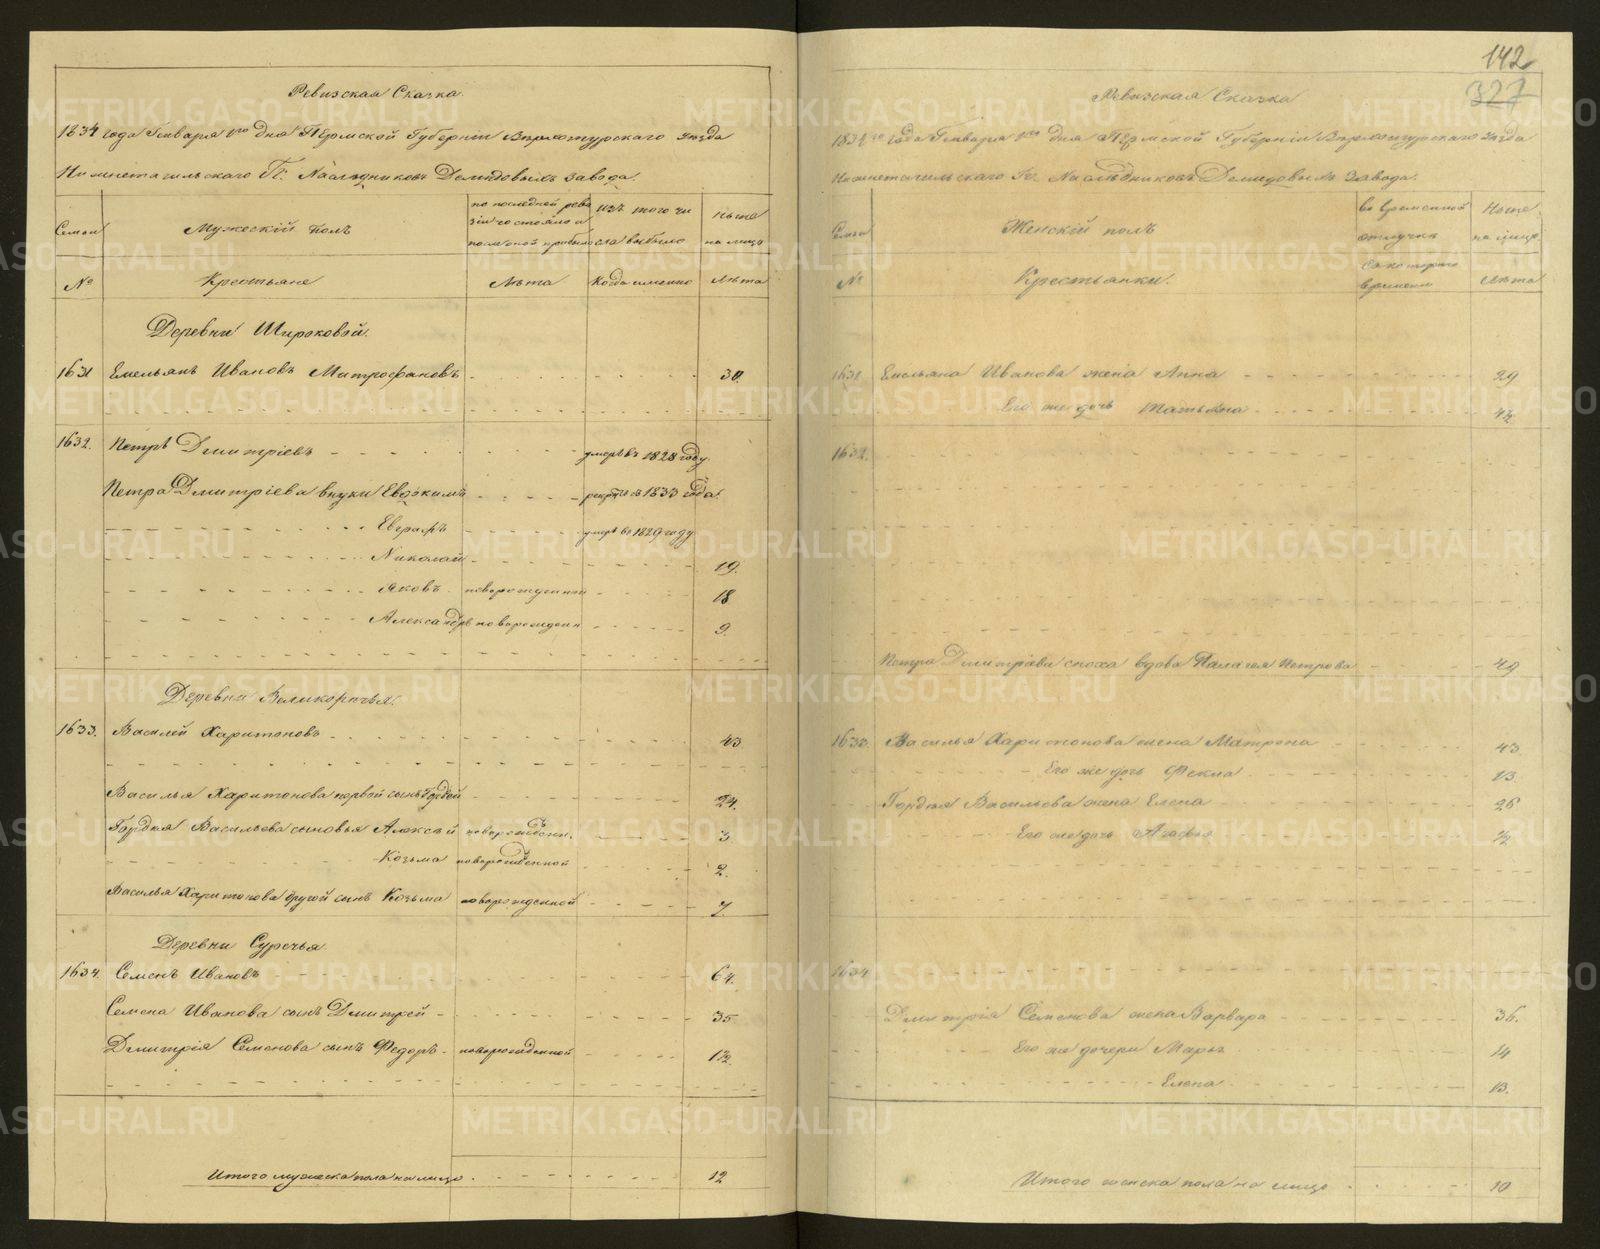 Ревизская Сказка.
1834 года Генваря 1го дня Пермской Губернiи Верхотурскаго уезда
Нижнетагильскаго Гг. Наследниковъ Демидовыхъ завода.
Семьи
Мужескiй полъ
по последней реви
зiи состояло и
после оной прибыло
изъ того чи
сла выбыло
Ныне
на лицо
№
Крестьяне
Лета
Когда именно
Лета
Деревни Широковой.
1631 Емельянъ Ивановъ Митрофановъ 30.
1632. Петръ Дмитрiевъ умеръ въ 1828 году.
Петра Дмитрiева внуки Евдокимъ рекрутъ съ 1833 года.
Евграфъ умеръ въ 1829 году
Николай 19.
Яковъ новорожденный 18
Александръ новорожден 9.
Деревни Великоречья.
1633. Василей Харитоновъ 43.
Василья Харитонова первой сынъ Гордей 24.
Гордея Васильева сыновья Алексей новорожден. 3
Козьма новорожденной 2.
Василья Харитонова другой сынъ Козьма новорожденной 7
Деревни Суречья
1634. Семенъ Ивановъ 64.
Семена Иванова сынъ Дмитрей 35
Дмитрiя Семенова сынъ Федоръ новорожденной 12
Итого мужеска пола на лицо 12
142
327
Ревизская Сказка
1834го года Генваря 1го дня Пермской Губернiи Верхотурскаго уезда
Нижнетагильскаго Гг. Наследниковъ Демидовыхъ завода.
Семьи
Женскiй полъ
во временной
отлучке
Ныне
на лицо
№
Крестьянки.
съ котораго
времени
Лета
1631 Емельяна Иванова жена Анна 29
Его же дочь Татьяна
1632.
Петра Дмитрiева сноха вдова Палагея Петрова 49
1633. Василья Харитонова жена Матрена 43
Его же дочь Фекла 13.
Гордея Васильева жена Елена 26
Его же дочь Агафья ½
1634
Дмитрiя Семенова жена Варвара 36.
Его же дочери Марья 14
Елена 13.
Итого женска пола на лицо 10
METRIKI.GASO-URAL.RU